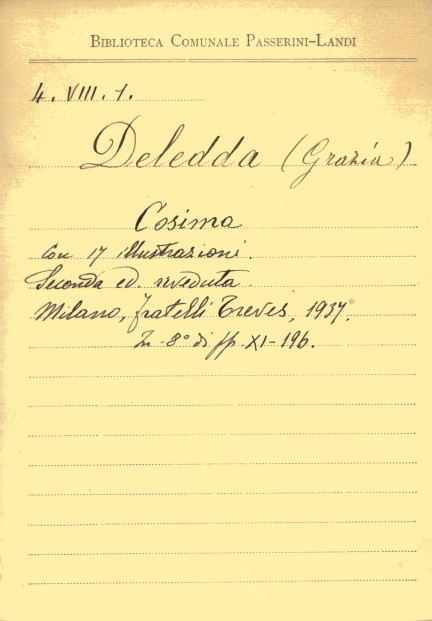 BIBLIOTECA COMUNALE PASSERINI-LANDI
4. VIII. 1.
Deledda (Grazia)
Cosima
Con 17 illustrazioni.
Seconda ed. riveduta.
Milano, fratelli Treves, 1937.
In-8° di pp. XI-196.